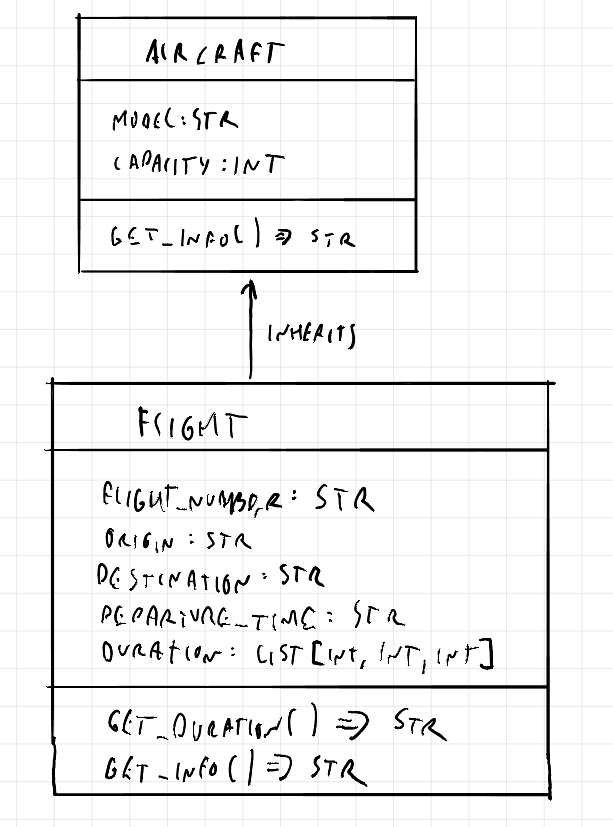 AIRCRAFT
MODEL:STR
CAPACITY:INT
GET_INFO() => STR
INHERITS
FLIGHT
FLIGHT_NUMBER: STR
ORIGIN : STR
DESTINATION: STR
DEPARTURE_TIME: STR
DURATION: LIST[INT, INT, INT]
GET_DURATION() => STR
GET_INFO() => STR